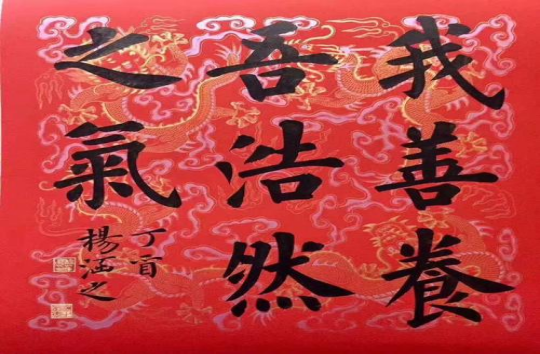 我善養
吾浩然
之氣
丁酉
楊涵之